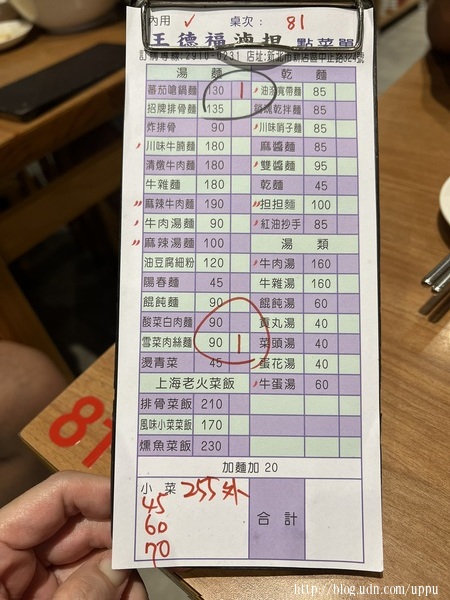 內用 ✓ 桌次： 81
王德福滷担 點菜單
湯 麵 乾 麵
蕃茄嗆鍋麵 130 1 油潑寬帶麵 85
招牌排骨麵 135 乾拌麵 85
炸排骨 90 川味哨子麵 85
川味牛腩麵 180 麻醬麵 85
清燉牛肉麵 180 雙醬麵 95
牛雜麵 180 乾麵 45
麻辣牛肉麵 190 担担麵 100
牛肉湯麵 90 紅油抄手 85
麻辣湯麵 100 湯 類
油豆腐細粉 120 牛肉湯 160
陽春麵 45 牛雜湯 160
餛飩麵 90 餛飩湯 60
酸菜白肉麵 90 貢丸湯 40
雪菜肉絲麵 90 1 菜頭湯 40
燙青菜 45 蛋花湯 40
上海老火菜飯 牛蛋湯 60
排骨菜飯 210
風味小菜菜飯 170
燻魚菜飯 230
加麵加 20
小 菜 255 外 合 計
45
60
70
81
http://blog.udn.com/uppu